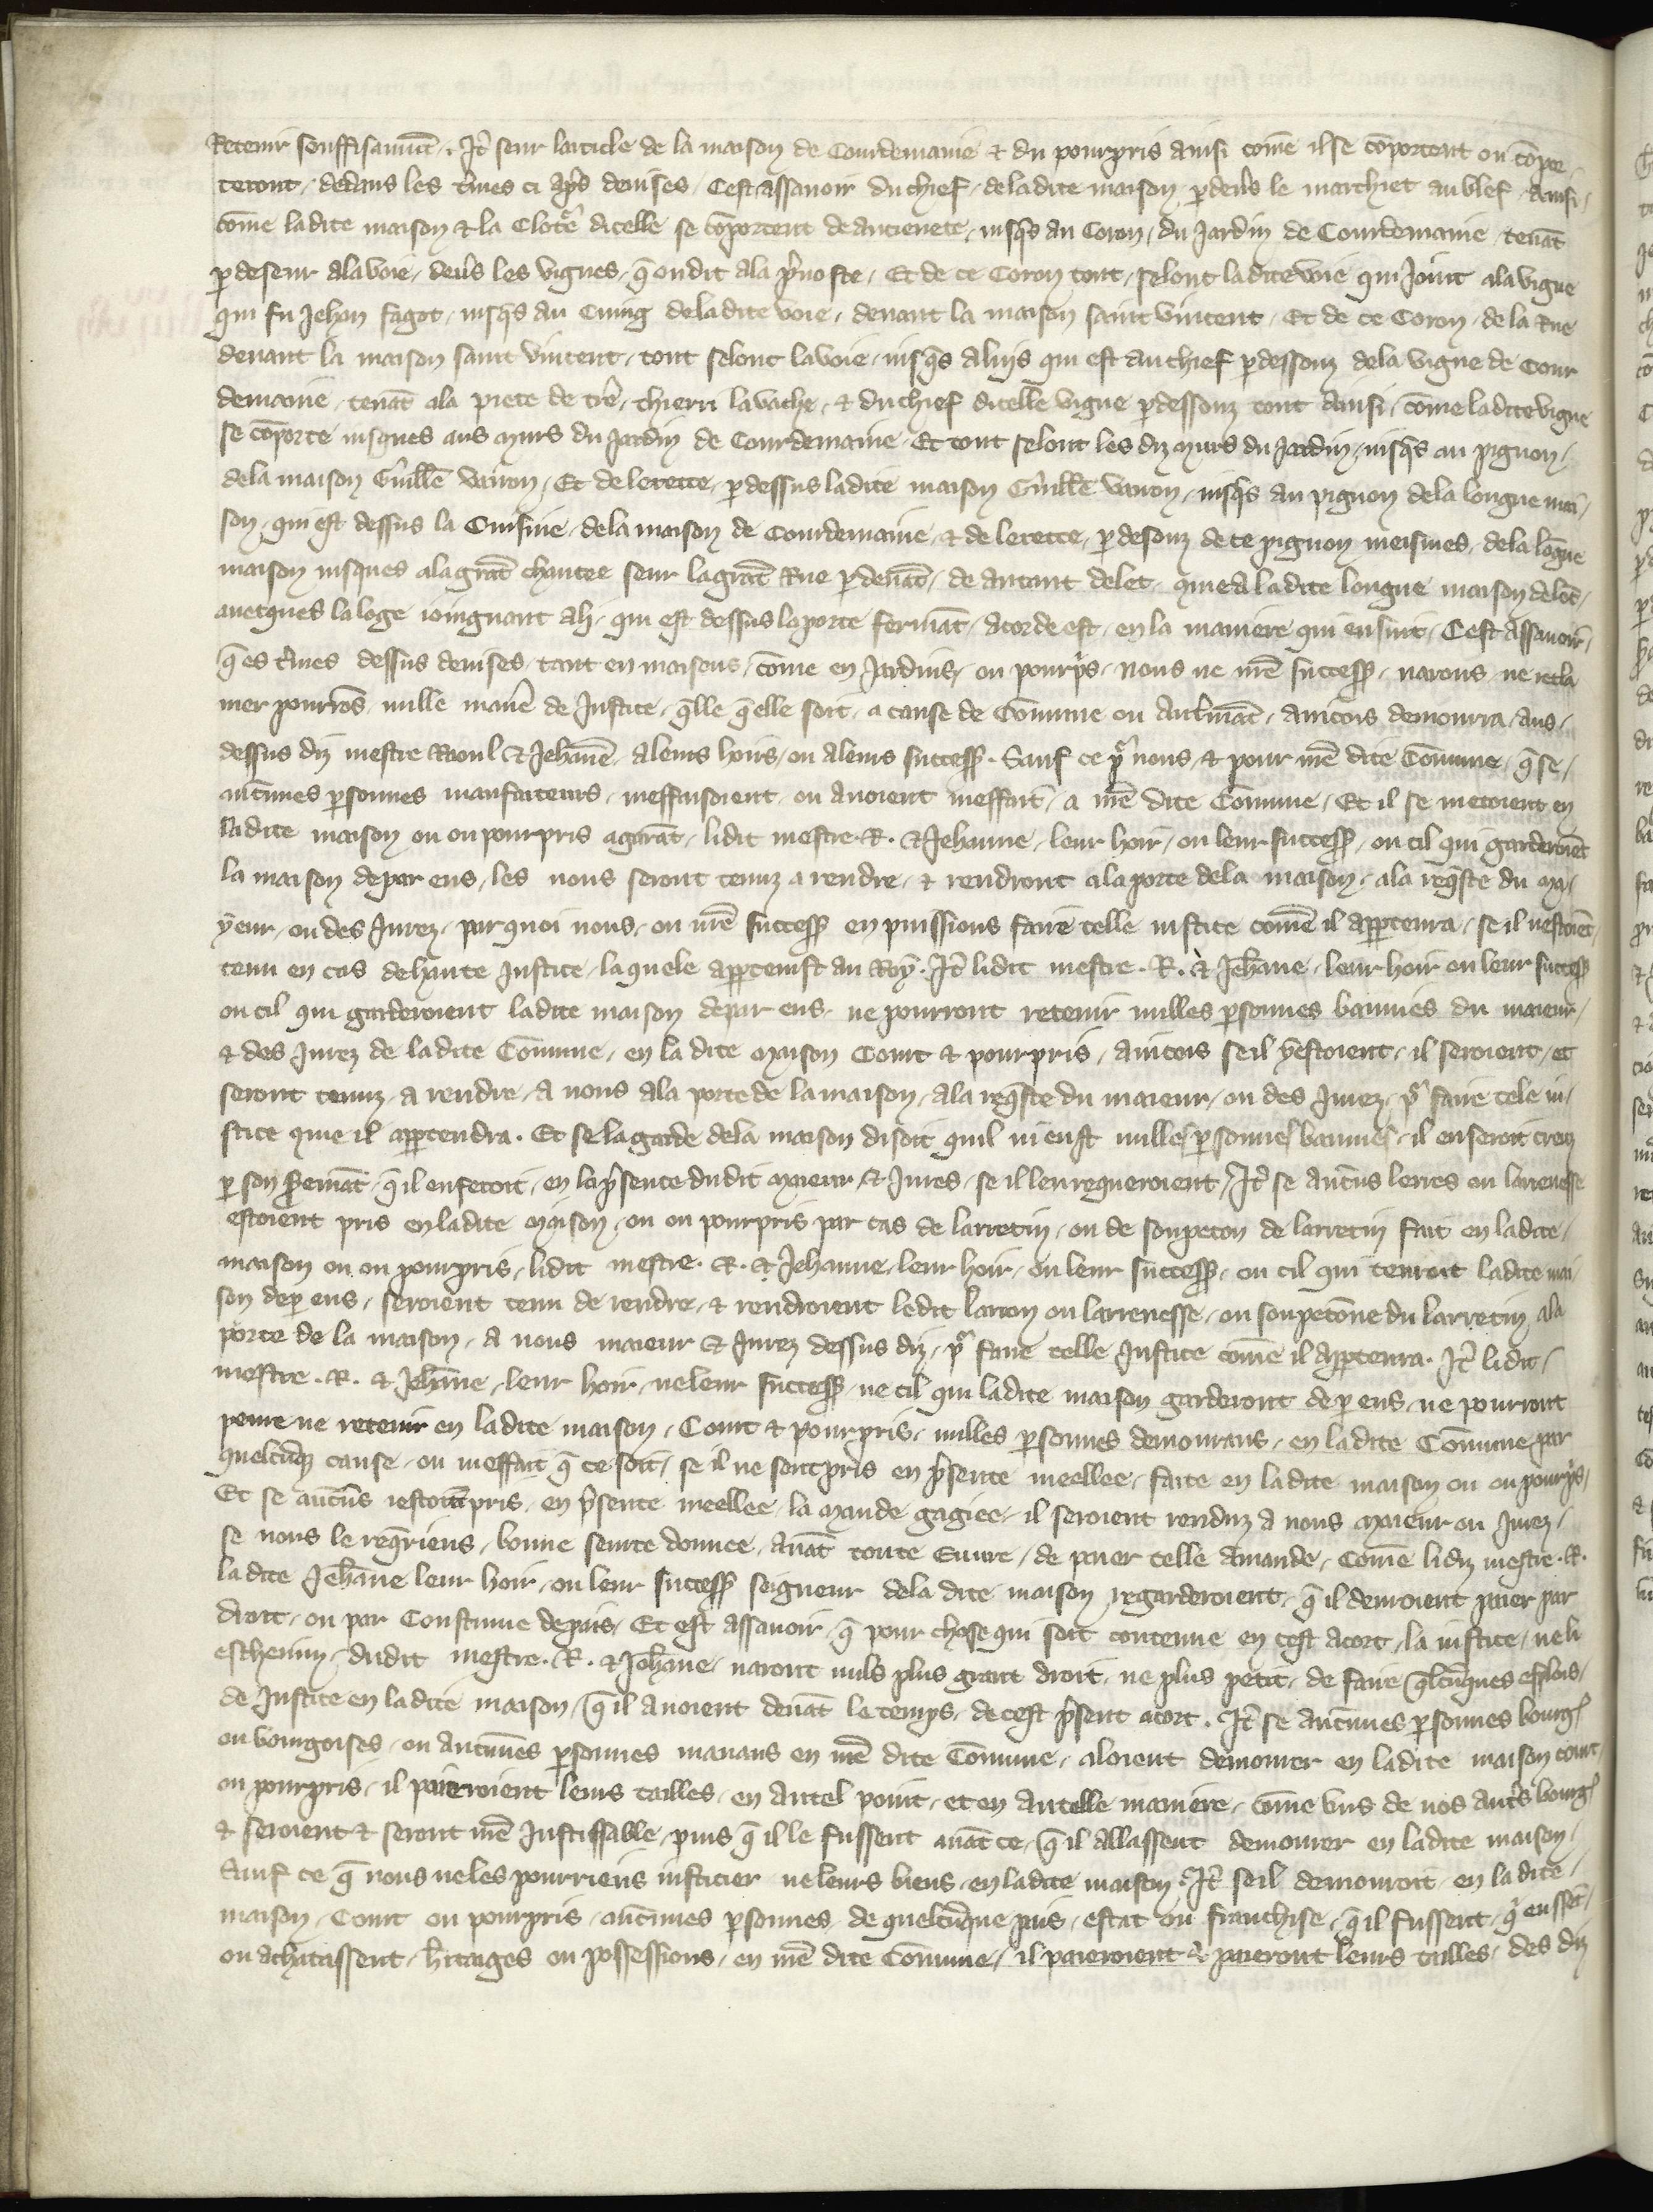 Retenir souffisamm̃t. It̃ seur larticle de la maison de Courdemaine & du pourpris ainsi cõme il se cõportent ou cõpor
teront, dedans les t̃mes ci ap̃s deuises, Cest assauoir du chief de la dite maison p deũs le marchiet au blef, ainsi
cõme la dite maison & la Clotẽ dicelle se cõportent de ancienete, iusq̃s au Coron, du Jardin de Courdemaine, tenãt
p deseur ala voie, deũs les vignes, q̃ on dit ala p̃uoste, Et de ce Coron tout, selonc la dite voie qui Joint ala vigne
qui fu Jehan fagot, iusq̃s au Cuing de la dite voie, deuant la maison saint Vincent, Et de ce Coron, de la Rue
deuant la maison saint Vincent, tout selonc la voie, iusq̃s a luys qui est au chief p dessouz de la vigne de Cour
demaine, tenãt ala piece de t̃re, thierri la vache, & du chief dicelle vigne p dessouz tout ainsi, cõme la dite vigne
se cõporte iusques aus murs du Jardin de Courdemaine. Et tout selonc les diz murs du Jardin, iusq̃s au pignon,
de la maison Guill̃e vairon, Et de lerette, p dessus la dite maison Guill̃e vairon, iusq̃s au pignon de la longue mai
son, qui est dessus la Cuisine, de la maison de Courdemaine, & de lerette, p desouz de ce pignon meismes, de la lõgue
maison iusques ala grãt chaucee seur la grãt Rue p deuãt, de autant de let, que a la dite longue maison de let,
auecques la loge ioingnant ali, qui est dessus la porte fermãt, acorde est, en la maniere qui en suit, Cest assauoir,
q̃ es t̃mes dessus deuises, tant en maisons, cõme en Jardins, ou pourp̃s, nous ne nr̃e success̃, narons ne recla
mer pourrõs nulle manĩe de Justice, q̃lle q̃elle soit, a cause de Cõmune ou Autr̃mãt, aincois demourra, aus
dessus diz mestre Raoul & Jehãne, aleurs hoirs, ou aleurs success̃. Sauf ce p̃ nous, & pour nr̃e dite Cõmune, q̃ se,
aucunes p̃sonnes maufaiteurs, meffaisoient, ou auoient meffait, a nr̃e dite Cõmune, Et il se metoient en
la dite maison ou ou pourpris agarãt, li dit mestre. R. & Jehanne, leur hoir, ou leur success̃, ou cil qui garderoiẽt
la maison de par eus, les nous seront tenuz a rendre, & rendront ala porte de la maison, ala req̃ste du ma
yeur, ou des Jurez, par quoi nous, ou nr̃e success̃ en puissions faire telle iustice cõme il appertenra, se il nestoiẽt,
tenu en cas de haute Justice, laquele appertenist au Roy. It̃ li dit mestre. R. & Jehãne, leur hoir ou leur success̃
ou cil qui garderoient la dite maison de par eus, ne pourront retenir nulles p̃sonnes bannies du maieur,
& des Jurez de la dite Cõmune, en la dite maison Court & pourpris, aincois se il y estoient, il seroient, et
seront tenuz, a rendre, a nous ala porte de la maison, ala req̃ste du maieur, ou des Jurez, p̃ faire tele iu
stice que il appertendra. Et se la garde de la maison disoit quil ni eust nulles p̃sonnes bannies, il en seroit creuz
p son serem̃t, q̃ il en feroit, en la p̃sence du dit maieur, & Jures, se il len requeroient, It̃ se aucũs lerres ou larrenesse
estoient pris en la dite maison, ou ou pourpris par cas de larrecin, ou de soupecon de larrecin fait en la dite,
maison ou ou pourpris, li dit mestre. R. & Jehanne, leur hoir, ou leur success̃, ou cil qui tenroit la dite mai
son de p eus, seroient tenu de rendre, & rendroient le dit larron ou larrenesse, ou soupecõne du larrecin ala
porte de la maison, a nous maieur & Jurez dessus diz, p̃ faire telle Justice cõme il appertenra. It̃ li dit,
mestre. R. & Jehãne, leur hoir, ne leur success̃, ne cil qui la dite maison garderont de p eus, ne pourront
penre ne retenir en la dite maison, Court & pourpris, nulles p̃sonnes demourans, en la dite Cõmune, par
quelcũq̃ cause, ou meffait q̃ ce soit, se il ne sont pris en p̃sente meellee, faite en la dite maison ou ou pourp̃s,
Et se aucũs iestoiẽt pris, en p̃sente meellee, la mande gagiee, il seroient renduz a nous maieur ou Jurez,
se nous le req̃riens, bonne seurte donnee, auãt toute Euure, de paier telle amande, Cõme li diz mestre. R.
la dite Jehãne leur hoir, ou leur success̃ seigneur de la dite maison regarderoient, q̃ il deuroient paier par
droit, ou par Coustume de pais, Et est assauoir, q̃ pour chose qui soit contenue en cest acort, la iustice, ne li
escheuin, du dit mestre. R. & Jehãne, naront nuls plus grant droit, ne plus petit, de faire q̃lcũques esplois,
de Justice en la dite maison, q̃ il auoient deuãt le temps, de cest p̃sent acort. It̃ se aucunes p̃sonnes bourg̃
ou bourgoises, ou aucunes p̃sonnes manans en nr̃e dite Cõmune, aloient demourer en la dite maison court,
ou pourpris, il paieroient leurs tailles, en autel point, et en autelle maniere, cõme vns de nos autr̃s bourg̃
& seroient & seront nr̃e Justissable, puis q̃ il le fussent auãt ce, q̃ il allassent demourer en la dite maison,
Sauf ce q̃ nous ne les pourriens iusticier ne leurs biens, en la dite maison. It̃ se il demouroit, en la dite,
maison, Court ou pourpris, aucunes p̃sonnes de quelcũque pais, estat ou franchise, q̃ il fussent, q̃ eussẽt,
ou achatassent, h̃itages ou possessions, en nr̃e dite Cõmune, il paieroient & paieront leurs tailles, des diz